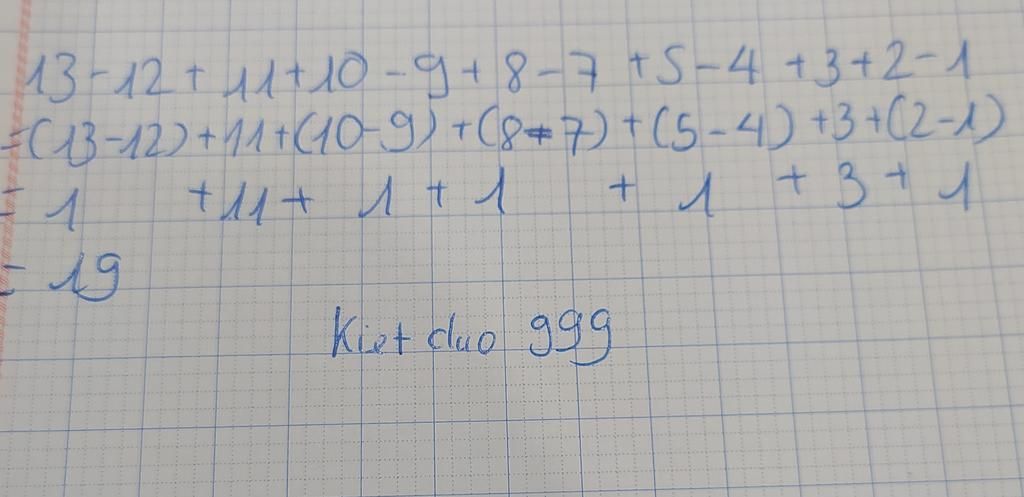 13-12+11+10-9+8-7+5-4+3+2-1
=(13-12)+11+(10-9)+(8-7)+(5-4)+3+(2-1)
= 1 +11+ 1 + 1 + 1 + 3 + 1
= 19
Kiet duo 999